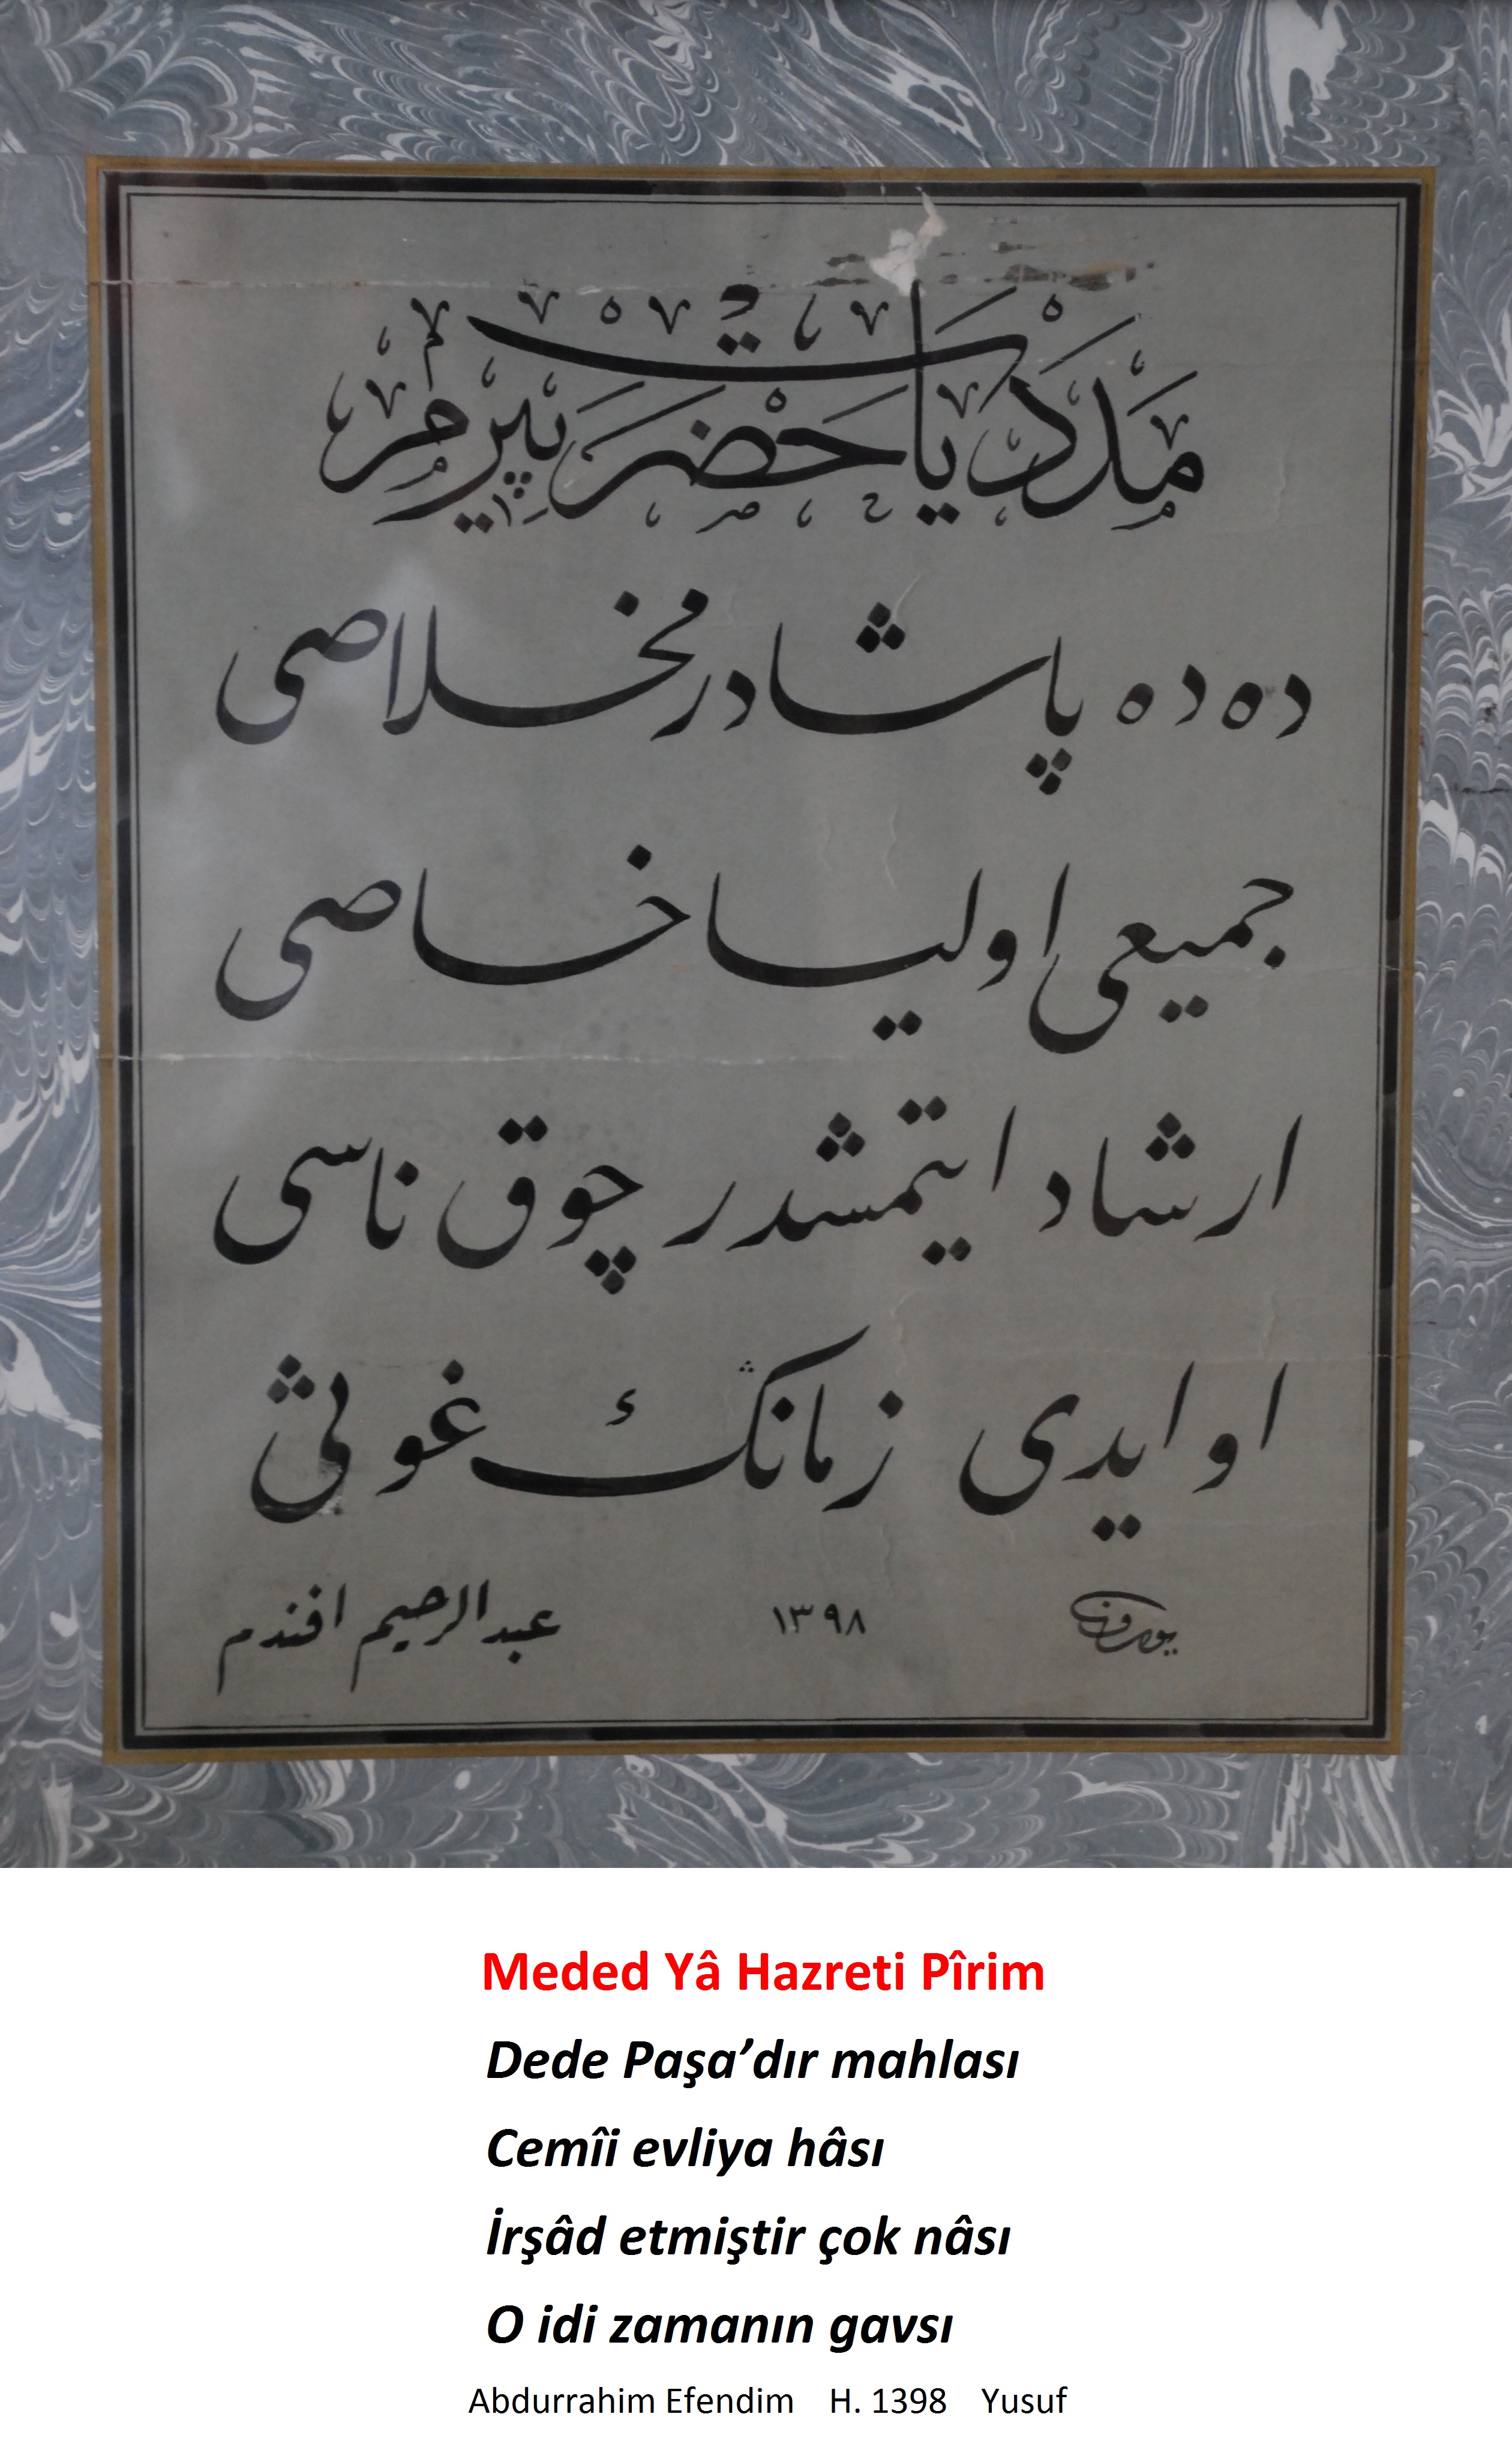 مدد يا حضرت پيرم
ده ده پاشادر مخلاصى
جميعى اوليا خاصى
ارشاد ايتمشدر چوق ناسى
او ايدى زمانڭ غوثى
يوسف ١٣٩٨ عبدالرحيم افندم
Meded Yâ Hazreti Pîrim
Dede Paşa’dır mahlası
Cemîi evliya hâsı
İrşâd etmiştir çok nâsı
O idi zamanın gavsı
Abdurrahim Efendim H. 1398 Yusuf